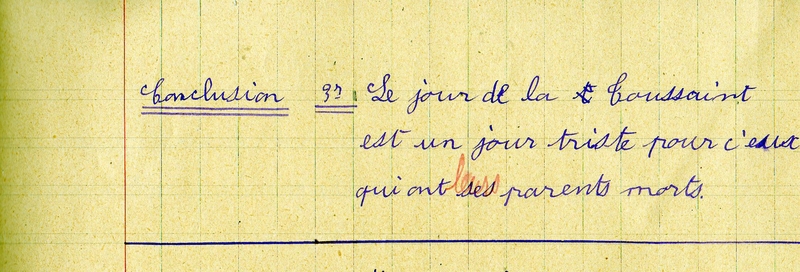 Conclusion 3º Le jour de la t Toussaint
est un jour triste pour c'eux
qui ont ses leurs parents morts.